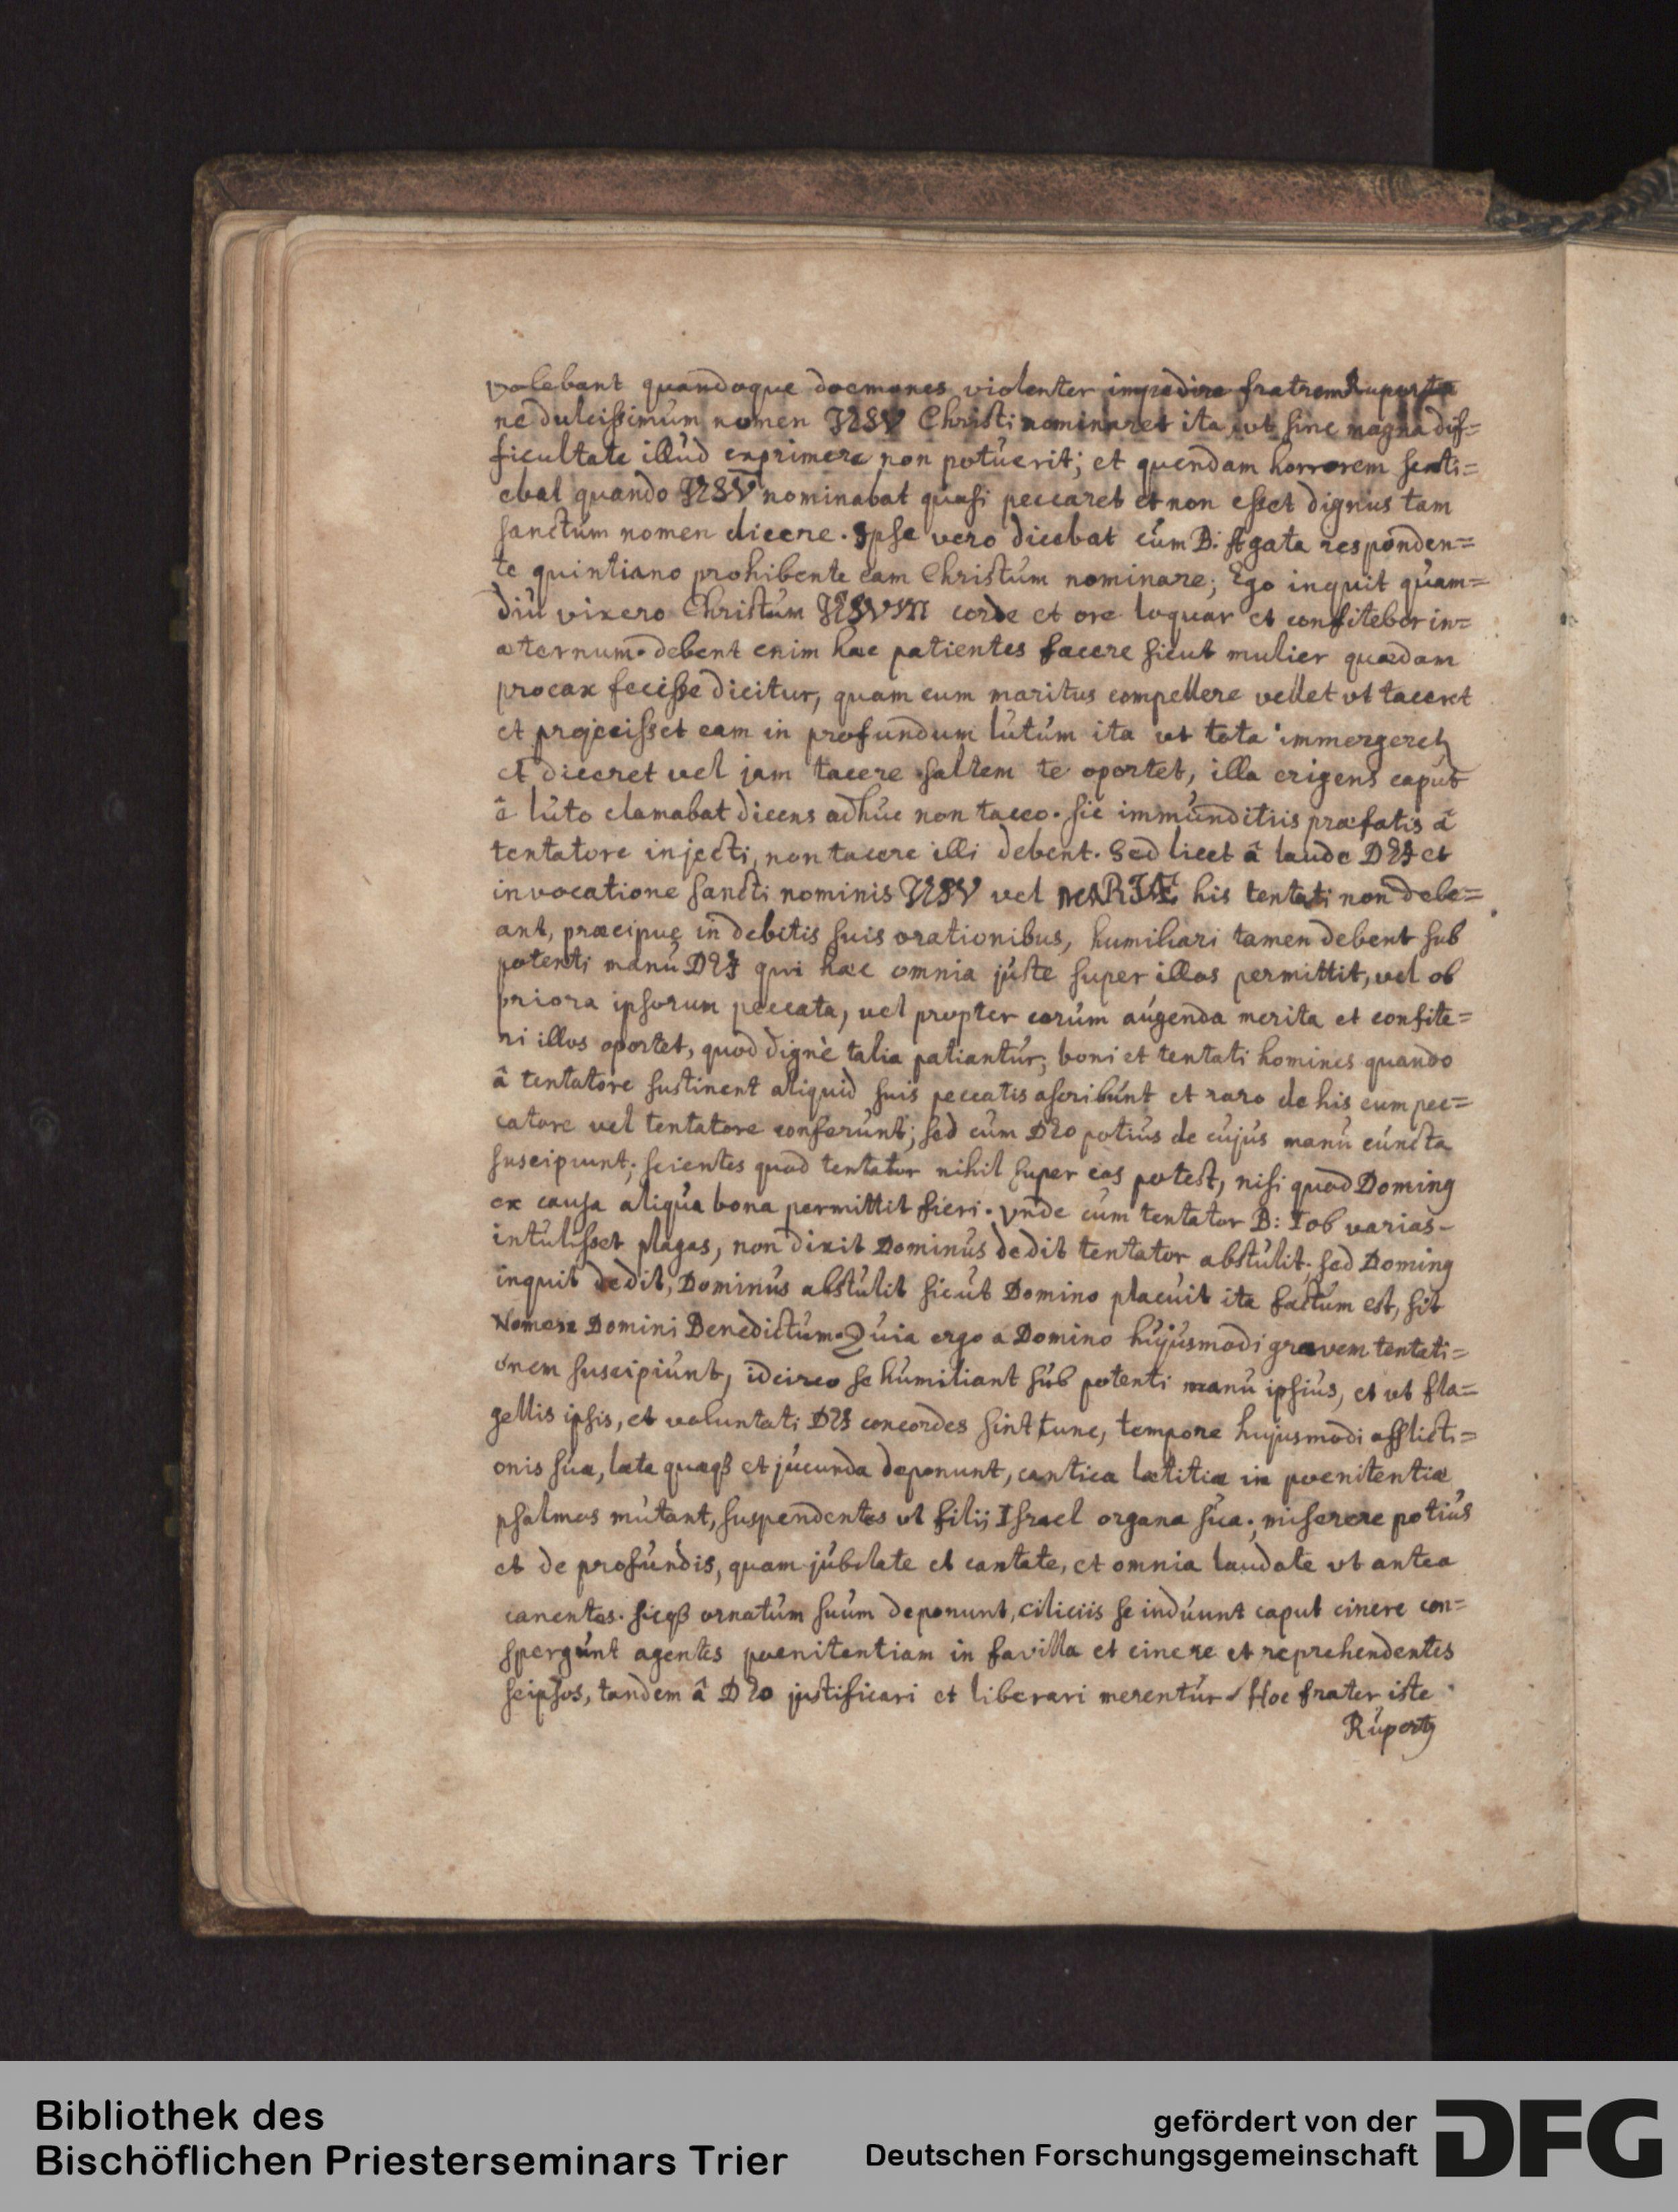 volebant quandoque doemones violenter impedire fratrem Ruperta
ne dulcissimum nomen JESV Christi nominaret ita, vt sine magna dif=
ficultate illud exprimere non potuerit; et quendam horrorem senti=
ebat quando JESV nominabat quasi peccaret et non esset dignus tam
sanctum nomen dicere. Ipse vero dicebat cum B: Agata responden=
te quintiano prohibente eam Christum nominare; Ego inquit quam=
diu vixero Christum JESVM corde et ore loquar et confitebor in=
æternum. debent enim hæc patientes facere sicut mulier quædam
procax fecisse dicitur, quam cum maritus compellere vellet vt taceret
et projecisset eam in profundum lutum ita vt tota immergeret,
et diceret vel jam tacere saltem te oportet, illa erigens caput
â luto clamabat dicens adhuc non taceo. sic immunditiis præfatis â
tentatore injecti, non tacere illi debent. Sed licet â laude DEI et
invocatione sancti nominis JESV vel MARIÆ his tentati non debe=
ant, præcipuę in debitis suis orationibus, humiliari tamen debent sub
potenti manu DEI qui hæc omnia juste super illos permittit, vel ob
priora ipsorum peccata, vel propter eorum augenda merita et confite=
ri illos oportet, quod dignè talia patiantur; boni et tentati homines quando
â tentatore sustinent aliquid suis peccatis ascribunt et raro de his cum pec=
catore vel tentatore conferunt; sed cum DEO potius de cujus manu cuncta
suscipiunt; scientes quod tentator nihil super eos potest, nisi quod Dominꝰ
ex causa aliqua bona permittit fieri. Vnde cum tentator B: Iob varias-
intulisset plagas, non dixit Dominus dedit tentator abstulit. sed Dominꝰ
inquit dedit, Dominus abstulit sicut Domino placuit ita factum est, sit
Nomen Domini Benedictum. Quia ergo a Domino hujusmodi gravem tentati=
onem suscipiunt, idcirco se humiliant sub potenti manu ipsius, et vt fla=
gellis ipsis, et voluntati DEI concordes sint tunc, tempore hujusmodi afflicti=
onis suæ, læta quæqß et jucunda deponunt, cantica lætitiæ in poenitentiæ
psalmos mutant, suspendentes vt filij Israel organa sua; miserere potius
et de profundis, quam jubilate et cantate, et omnia laudate vt antea
canentes. sicqß ornatum suum deponunt, ciliciis se induunt caput cinere con=
spergunt agentes poenitentiam in favilla et cinere et reprehendentes
seipsos, tandem â DEO justificari et liberari merentur. Hoc frater iste
Rupertꝰ
Bibliothek des
Bischöflichen Priesterseminars Trier
gefördert von der
Deutschen Forschungsgemeinschaft
DFG